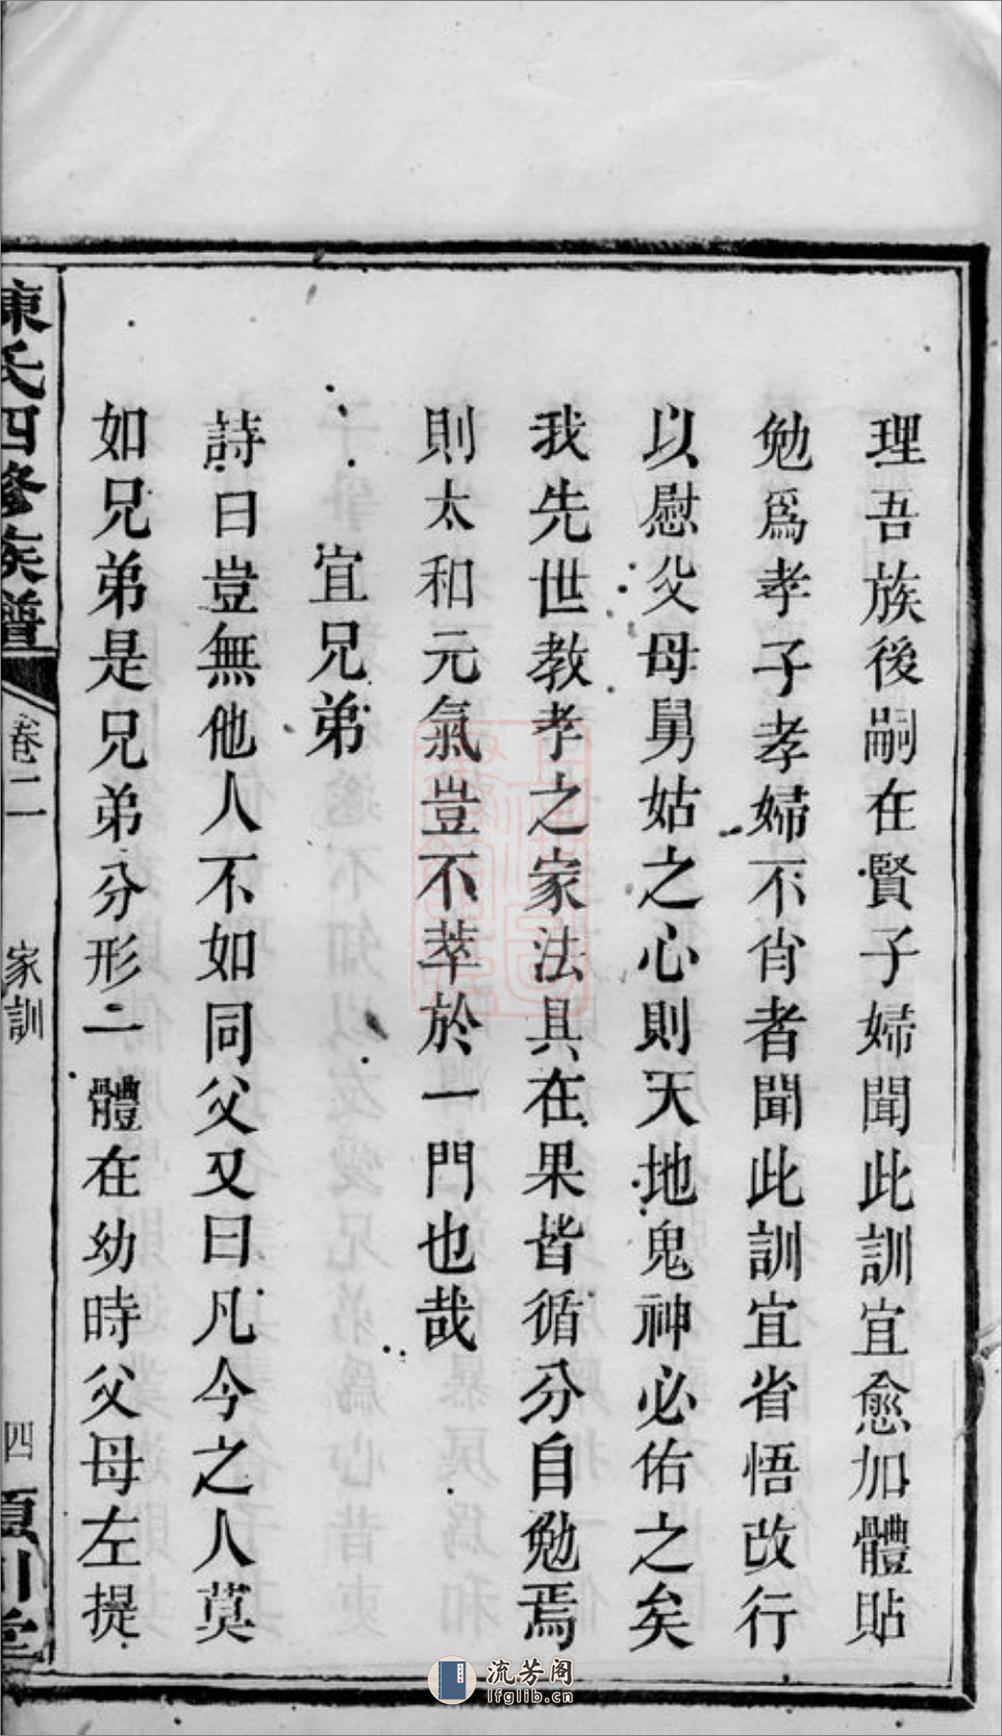 理吾族後嗣在賢子婦聞此訓宜愈加體貼
勉爲孝子孝婦不肖者聞此訓宜省悟改行
以慰父母舅姑之心則天地鬼神必佑之矣
我先世教孝之家法具在果皆循分自勉焉
則太和元氣豈不萃於一門也哉
宜兄弟
詩曰豈無他人不如同父又曰凡今之人莫
如兄弟是兄弟分形一體在幼時父母左提
陳氏四修族譜
卷二
家訓
四
流芳阁
lfglib.cn